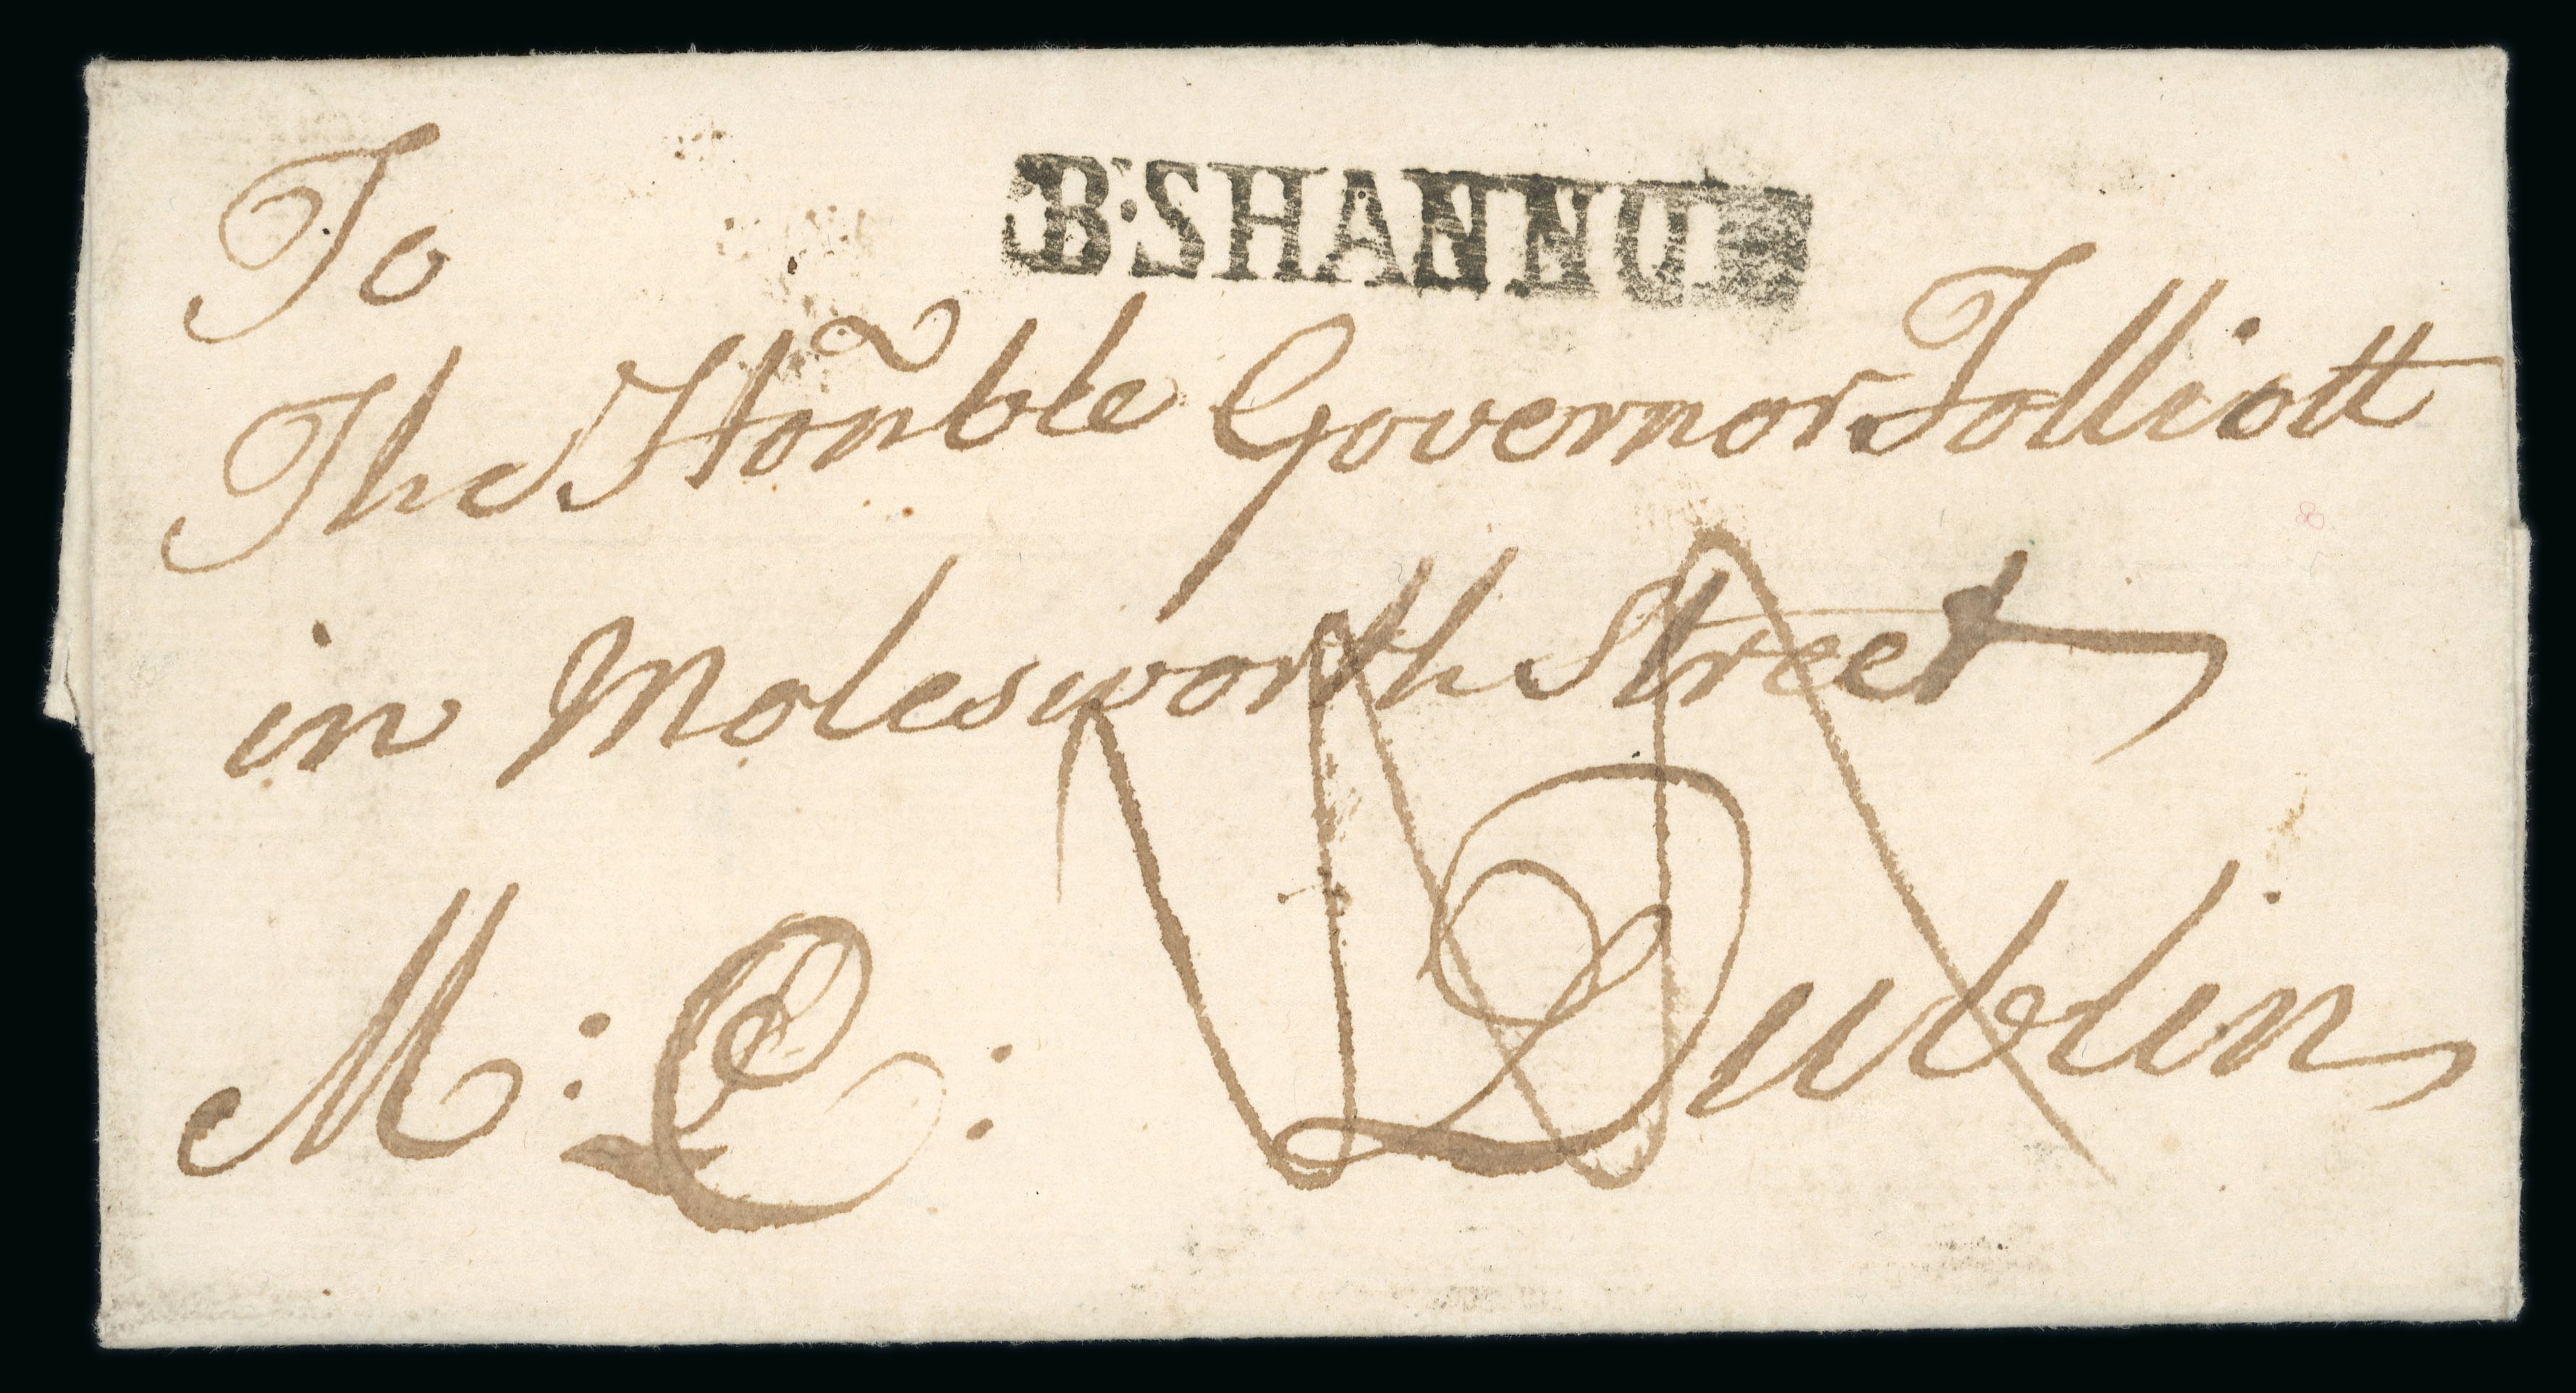 B:SHANNO
To
The Honble Governor Folliott
in Molesworth Street
M: C:
Dublin